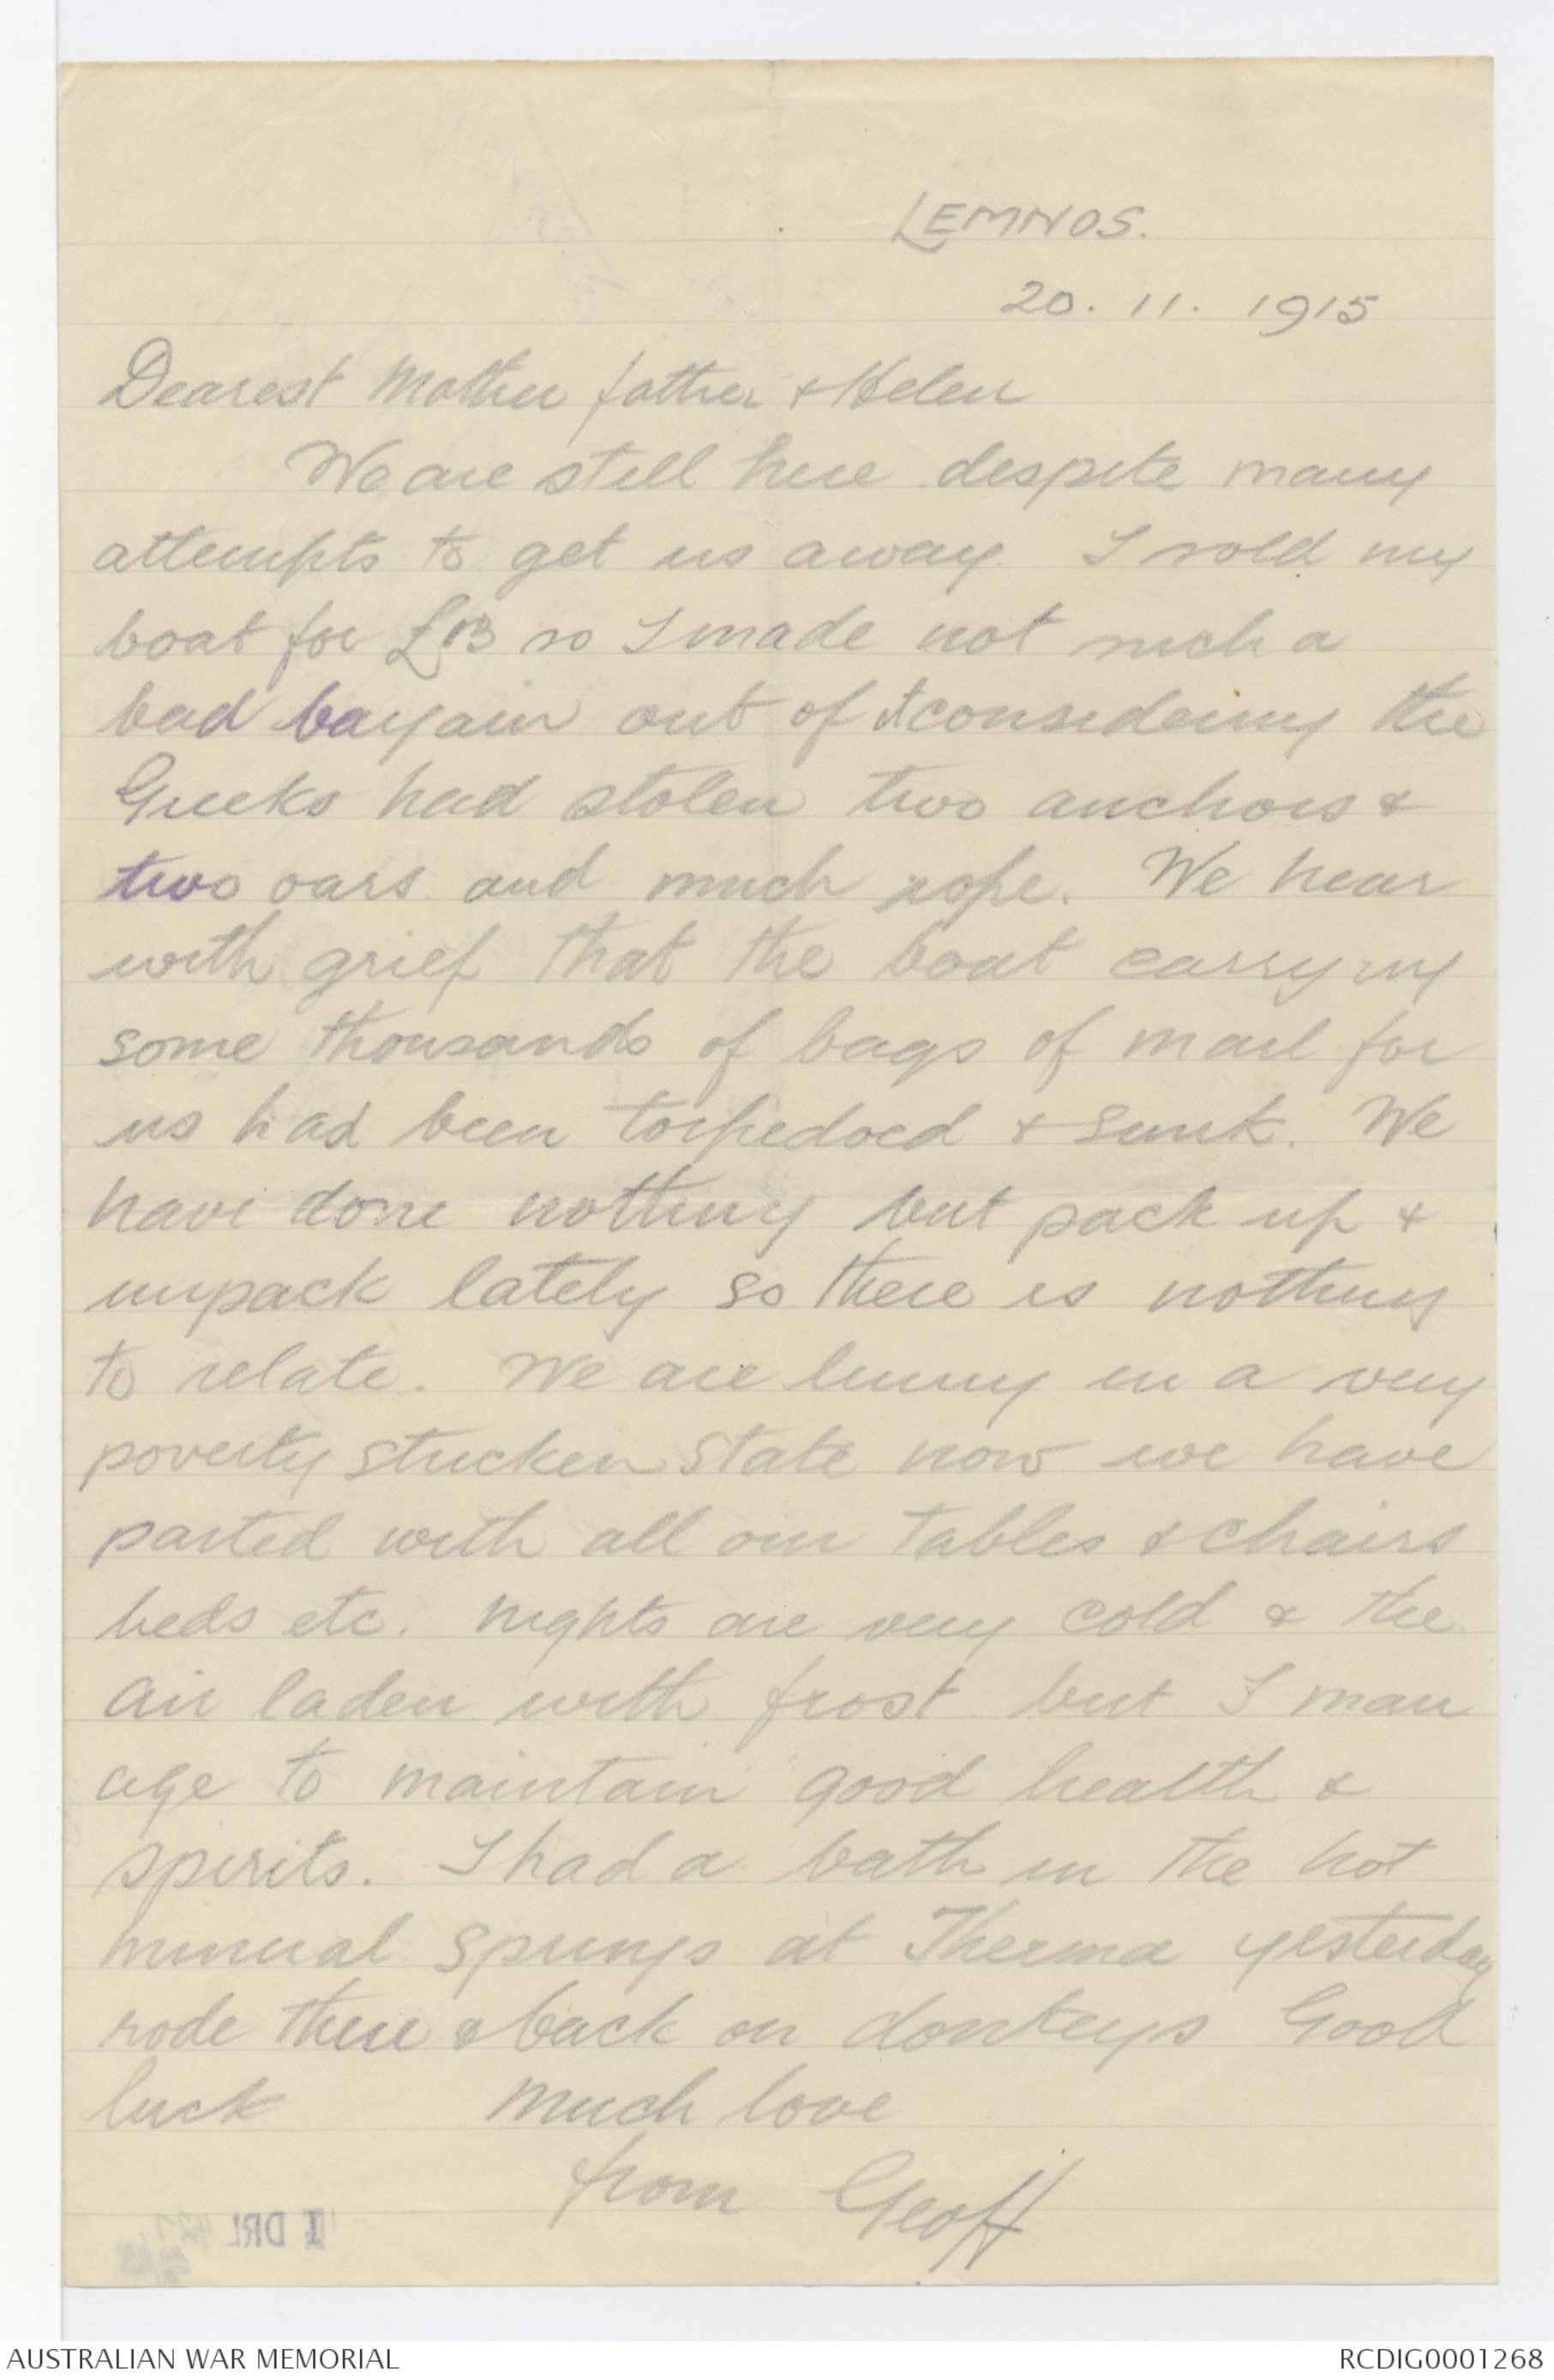 LEMNOS.
20. 11. 1915
Dearest Mother father & Helen
We are still here despite many
attempts to get us away. I sold my
boat for £13 so I made not such a
bad bargain out of it considering the
Greeks had stolen two anchors &
two oars and much rope. We hear
with grief that the boat carrying
some thousands of bags of mail for
us had been torpedoed & sunk. We
have done nothing but pack up &
unpack lately so there is nothing
to relate. We are living in a very
poverty stricken state now we have
parted with all our tables & chairs
beds etc. Nights are very cold & the
air laden with frost but I man
age to maintain good health &
spirits. I had a bath in the hot
mineral springs at Therma yesterday
rode there & back on donkeys Good
luck much love
from Geoff
AUSTRALIAN WAR MEMORIAL
RCDIG0001268